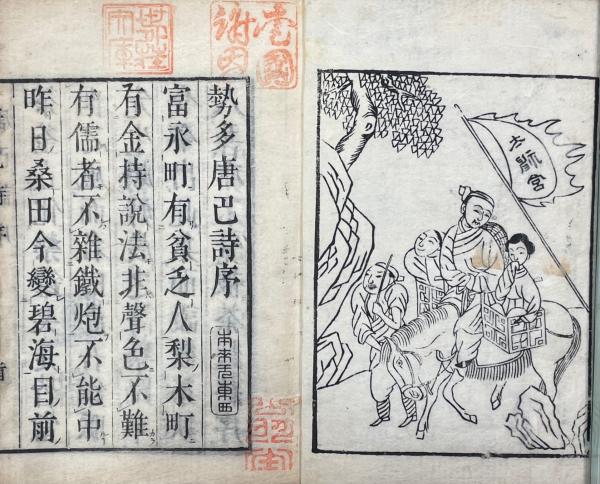 太神宮
勢多唐巴詩序
本來无東西
富永町有貧乏人梨木町
有金持說法非聲色不難
有儒者不雜鐵炮不能中
昨日桑田今變碧海目前